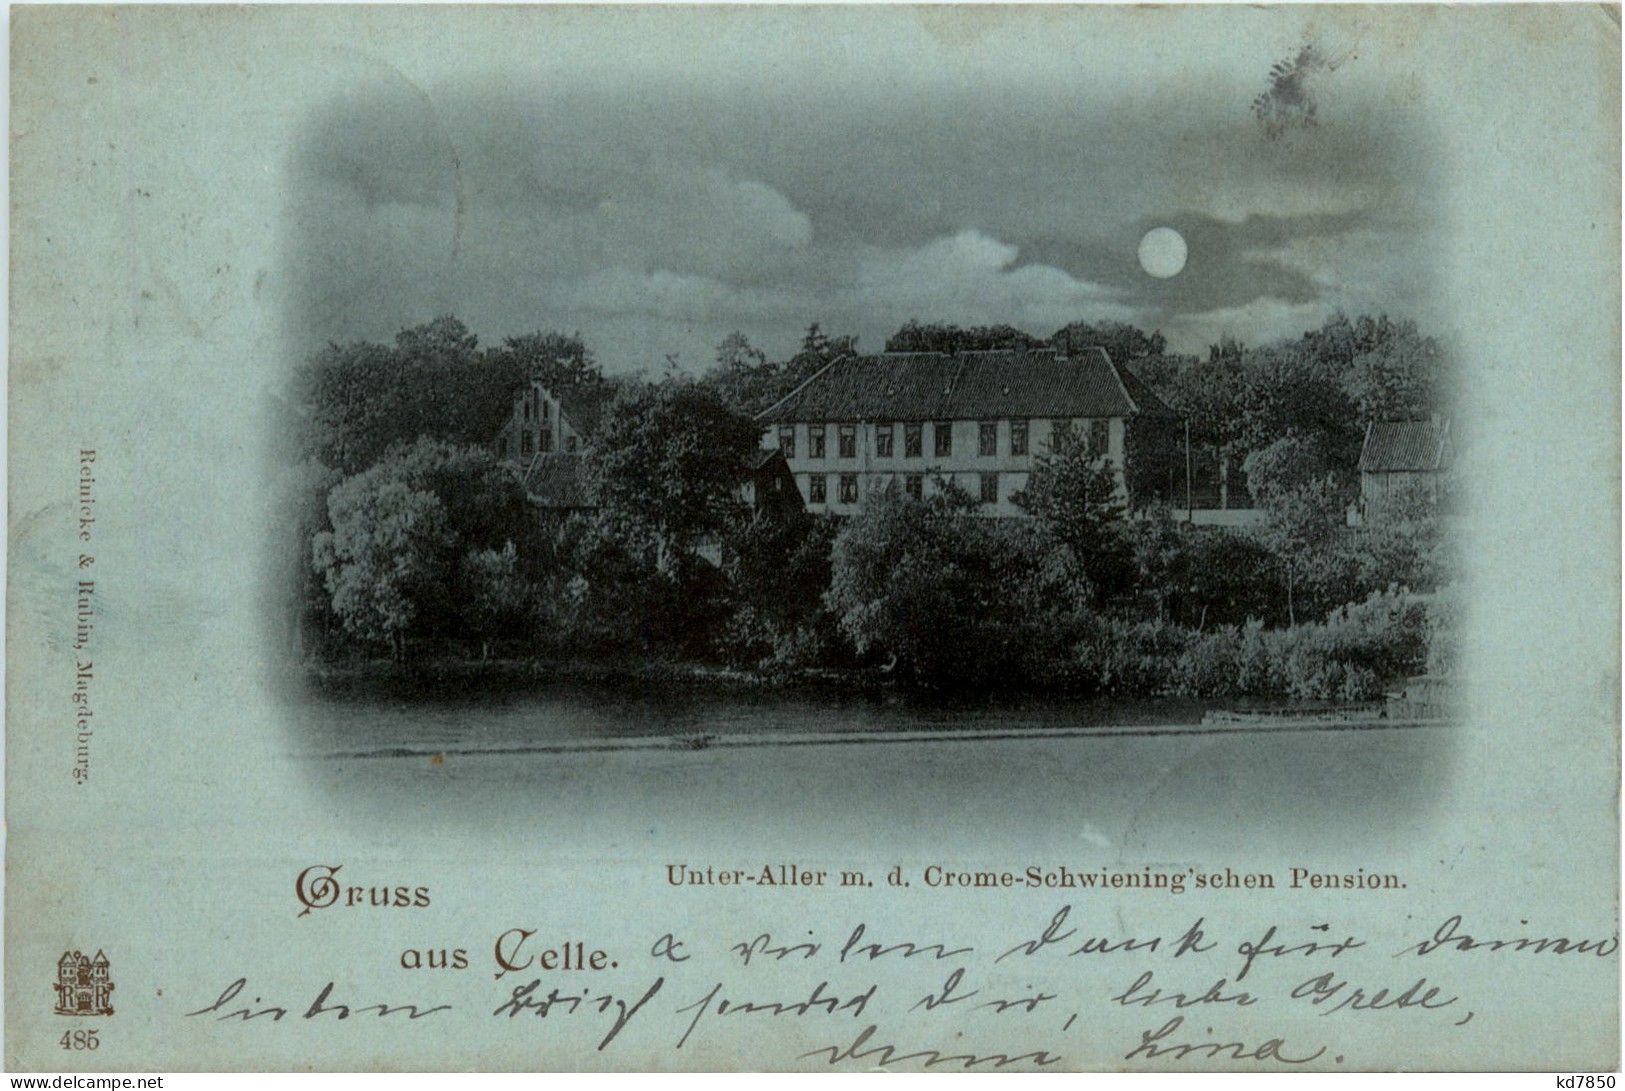 Reinicke & Rubin, Magdeburg.
Gruss
aus Celle.
Unter-Aller m. d. Crome-Schwiening'schen Pension.
& vielen Dank für deinen
lieben Brief sendet Dir, liebe Grete,
deine Lina.
R R
485
www.delcampe.net
kd7850